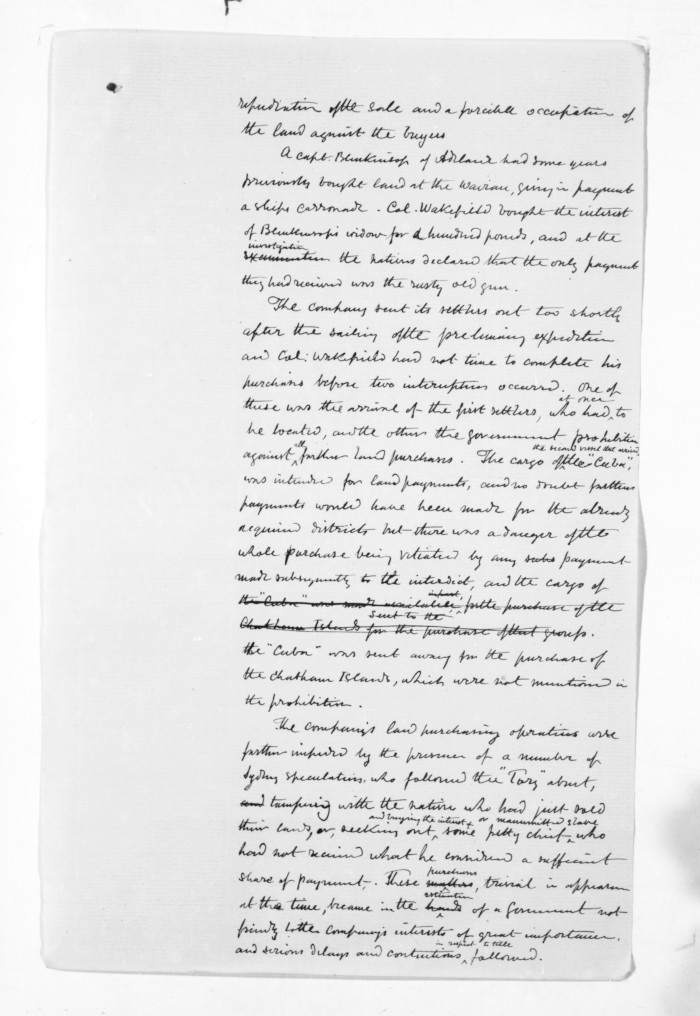 repudiation of the sale and a forcible occupation of
the land against the buyers
A capt. Blenkinsop of Adelaide had some years
previously bought land at the Wairau, giving in payment
a ships carronade. Col. Wakefield bought the interest
of Blenkinsop's widow for a hundred pounds, and at the
investigation
examination the natives declared that the only payment
they had received was the rusty old gun.
The company sent its settlers out too shortly
after the sailing of the preliminary expedition
and Col. Wakefield had not time to complete his
purchases before two interruptions occurred. One of
at once
these was the arrival of the first settlers, who had to
be located, and the other the government prohibition
the second vessel that arrived
against all further land purchases. The cargo of the "Cuba",
was intended for land payments, and no doubt further
payments would have been made for the already
acquired districts but there was a danger of the
whole purchase being vitiated by any payment
made subsequently to the interdict, and the cargo of
the "Cuba" was made available, in part, for the purchase of the
sent to the
Chatham Islands for the purchase of that group.
the "Cuba" was sent away for the purchase of
the Chatham Islands, which were not mentioned in
the prohibition.
The company's land purchasing operations were
further impeded by the presence of a number of
Sydney speculators who followed the "Tory" about,
and tampering with the natives who had just sold
and buying the interest of or manumitted slave
their lands, or, seeking out some petty chief who
had not received what he considered a sufficient
purchases
share of payment. These matters, trivial in appearance
estimation
at the time, became in the hands of a Government not
friendly to the company's interests of great importance,
in respect to title
and serious delays and contentions followed.